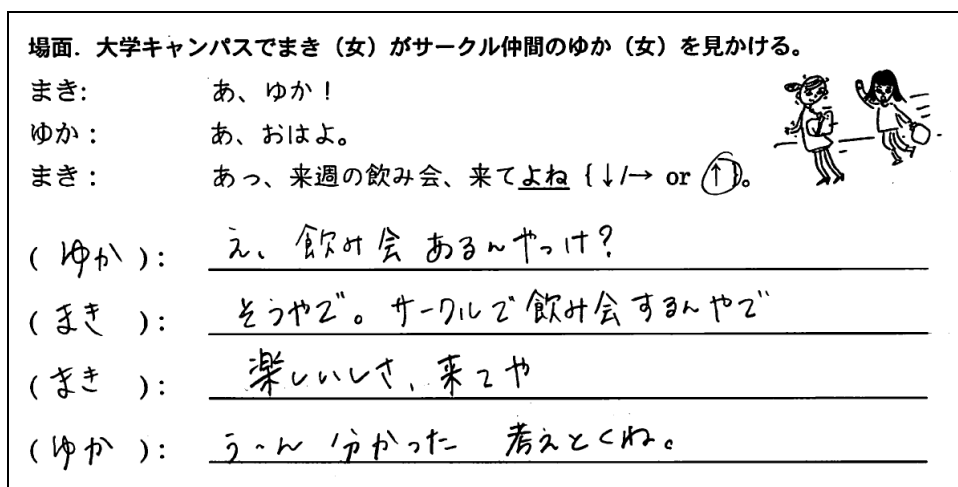 場面．大学キャンパスでまき（女）がサークル仲間のゆか（女）を見かける。
まき: あ、ゆか！
ゆか： あ、おはよ。
まき： あっ、来週の飲み会、来てよね {↓/→ or ↑}。
( ゆか ): え、飲み会あるんやっけ?
( まき ): そうやで。サークルで飲み会するんやで
( まき ): 楽しいしさ、来てや
( ゆか ): う〜ん 分かった 考えとくね。